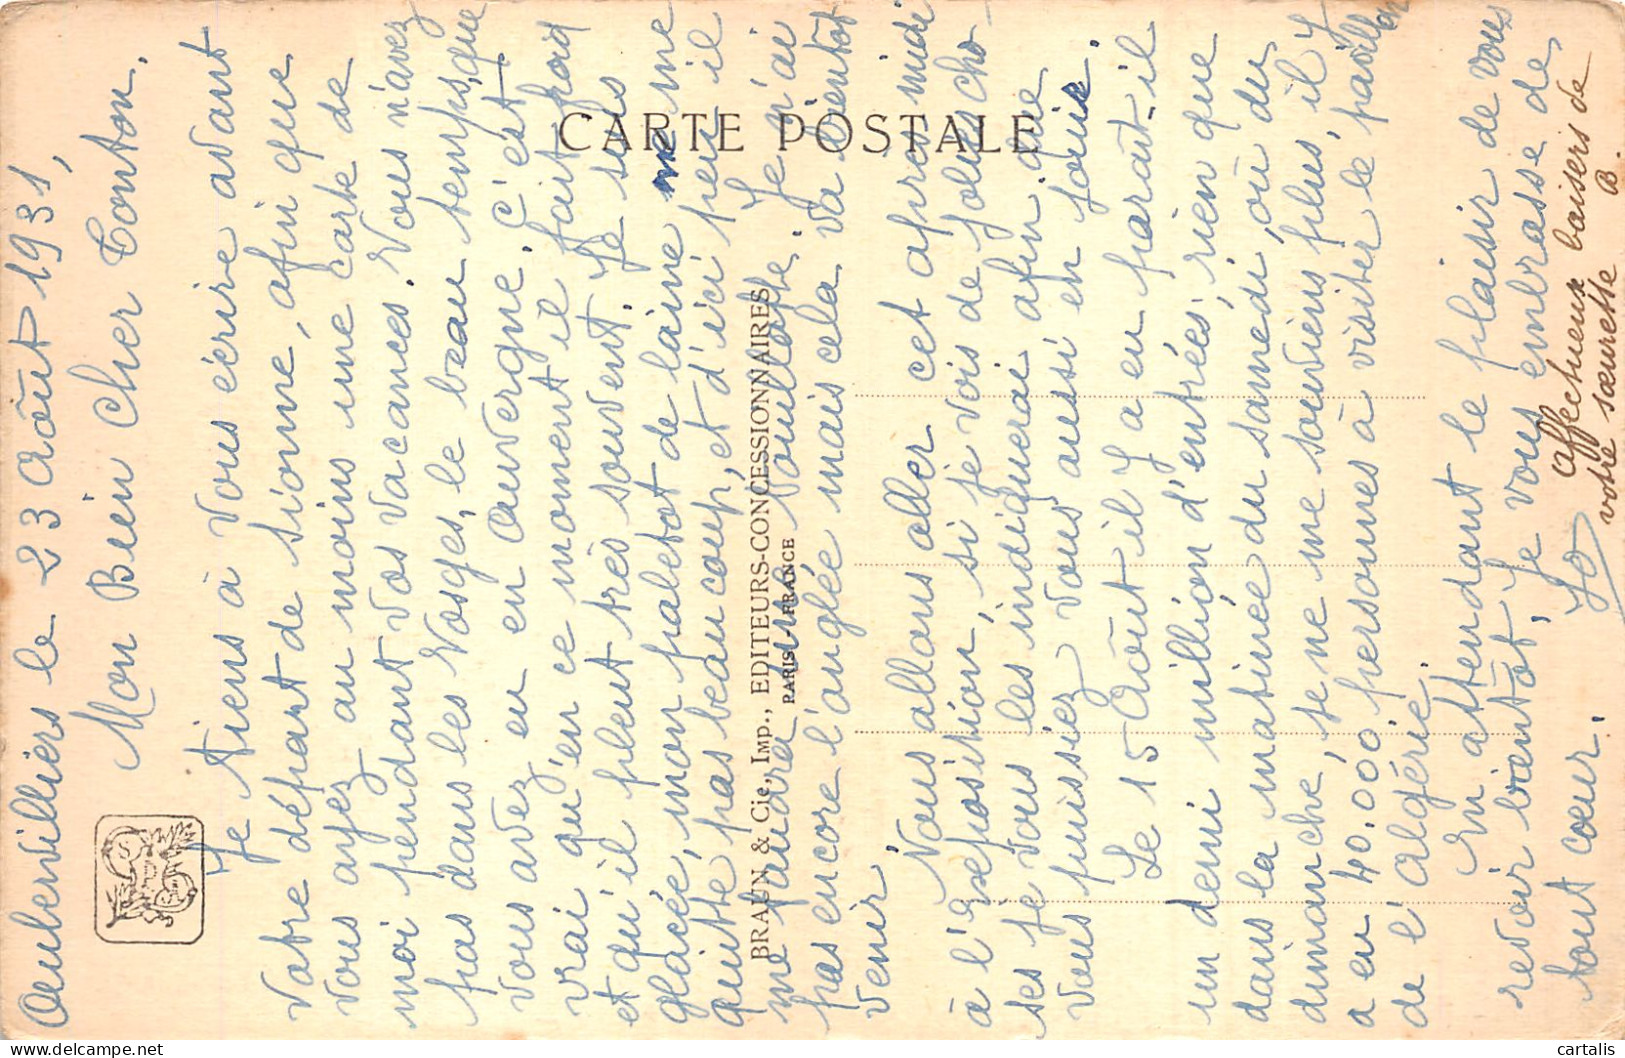 Aubervilliers le 23 Août 1931,
Mon Bien Cher Tonton.
Je tiens à vous écrire avant
votre départ de Sionne, afin que
vous ayez au moins une carte de
moi pendant vos vacances. Vous n'avez
pas dans les Vosges, le beau temps, que
vous avez eu en Auvergne. C'est
vrai qu'en ce moment il fait froid
et qu'il pleut très souvent. Je suis
glacée, mon paletot de laine ne me
quitte pas beaucoup, et d'ici peu il
me faudra une bouillotte. Je n'ai
pas encore l'onglée mais cela va bientôt
venir.
Nous allons aller cet après midi
à l'Exposition, si je vois de jolies cho-
ses je vous les indiquerai afin que
vous puissiez vous aussi en jouir.
Le 15 Août il y a eu parait-il
un demi million d'entrées, rien que
dans la matinée du samedi, où du
dimanche, je ne me souviens plus, il y
a eu 40.000 personnes à visiter le pavillon
de l'Algérie.
En attendant le plaisir de vous
revoir bientôt, je vous embrasse de
tout cœur.
Yo
affectueux baisers de
votre sœurette
B.
CARTE POSTALE
BRAUN & Cie, Imp., EDITEURS-CONCESSIONNAIRES
PARIS - FRANCE
cartalis